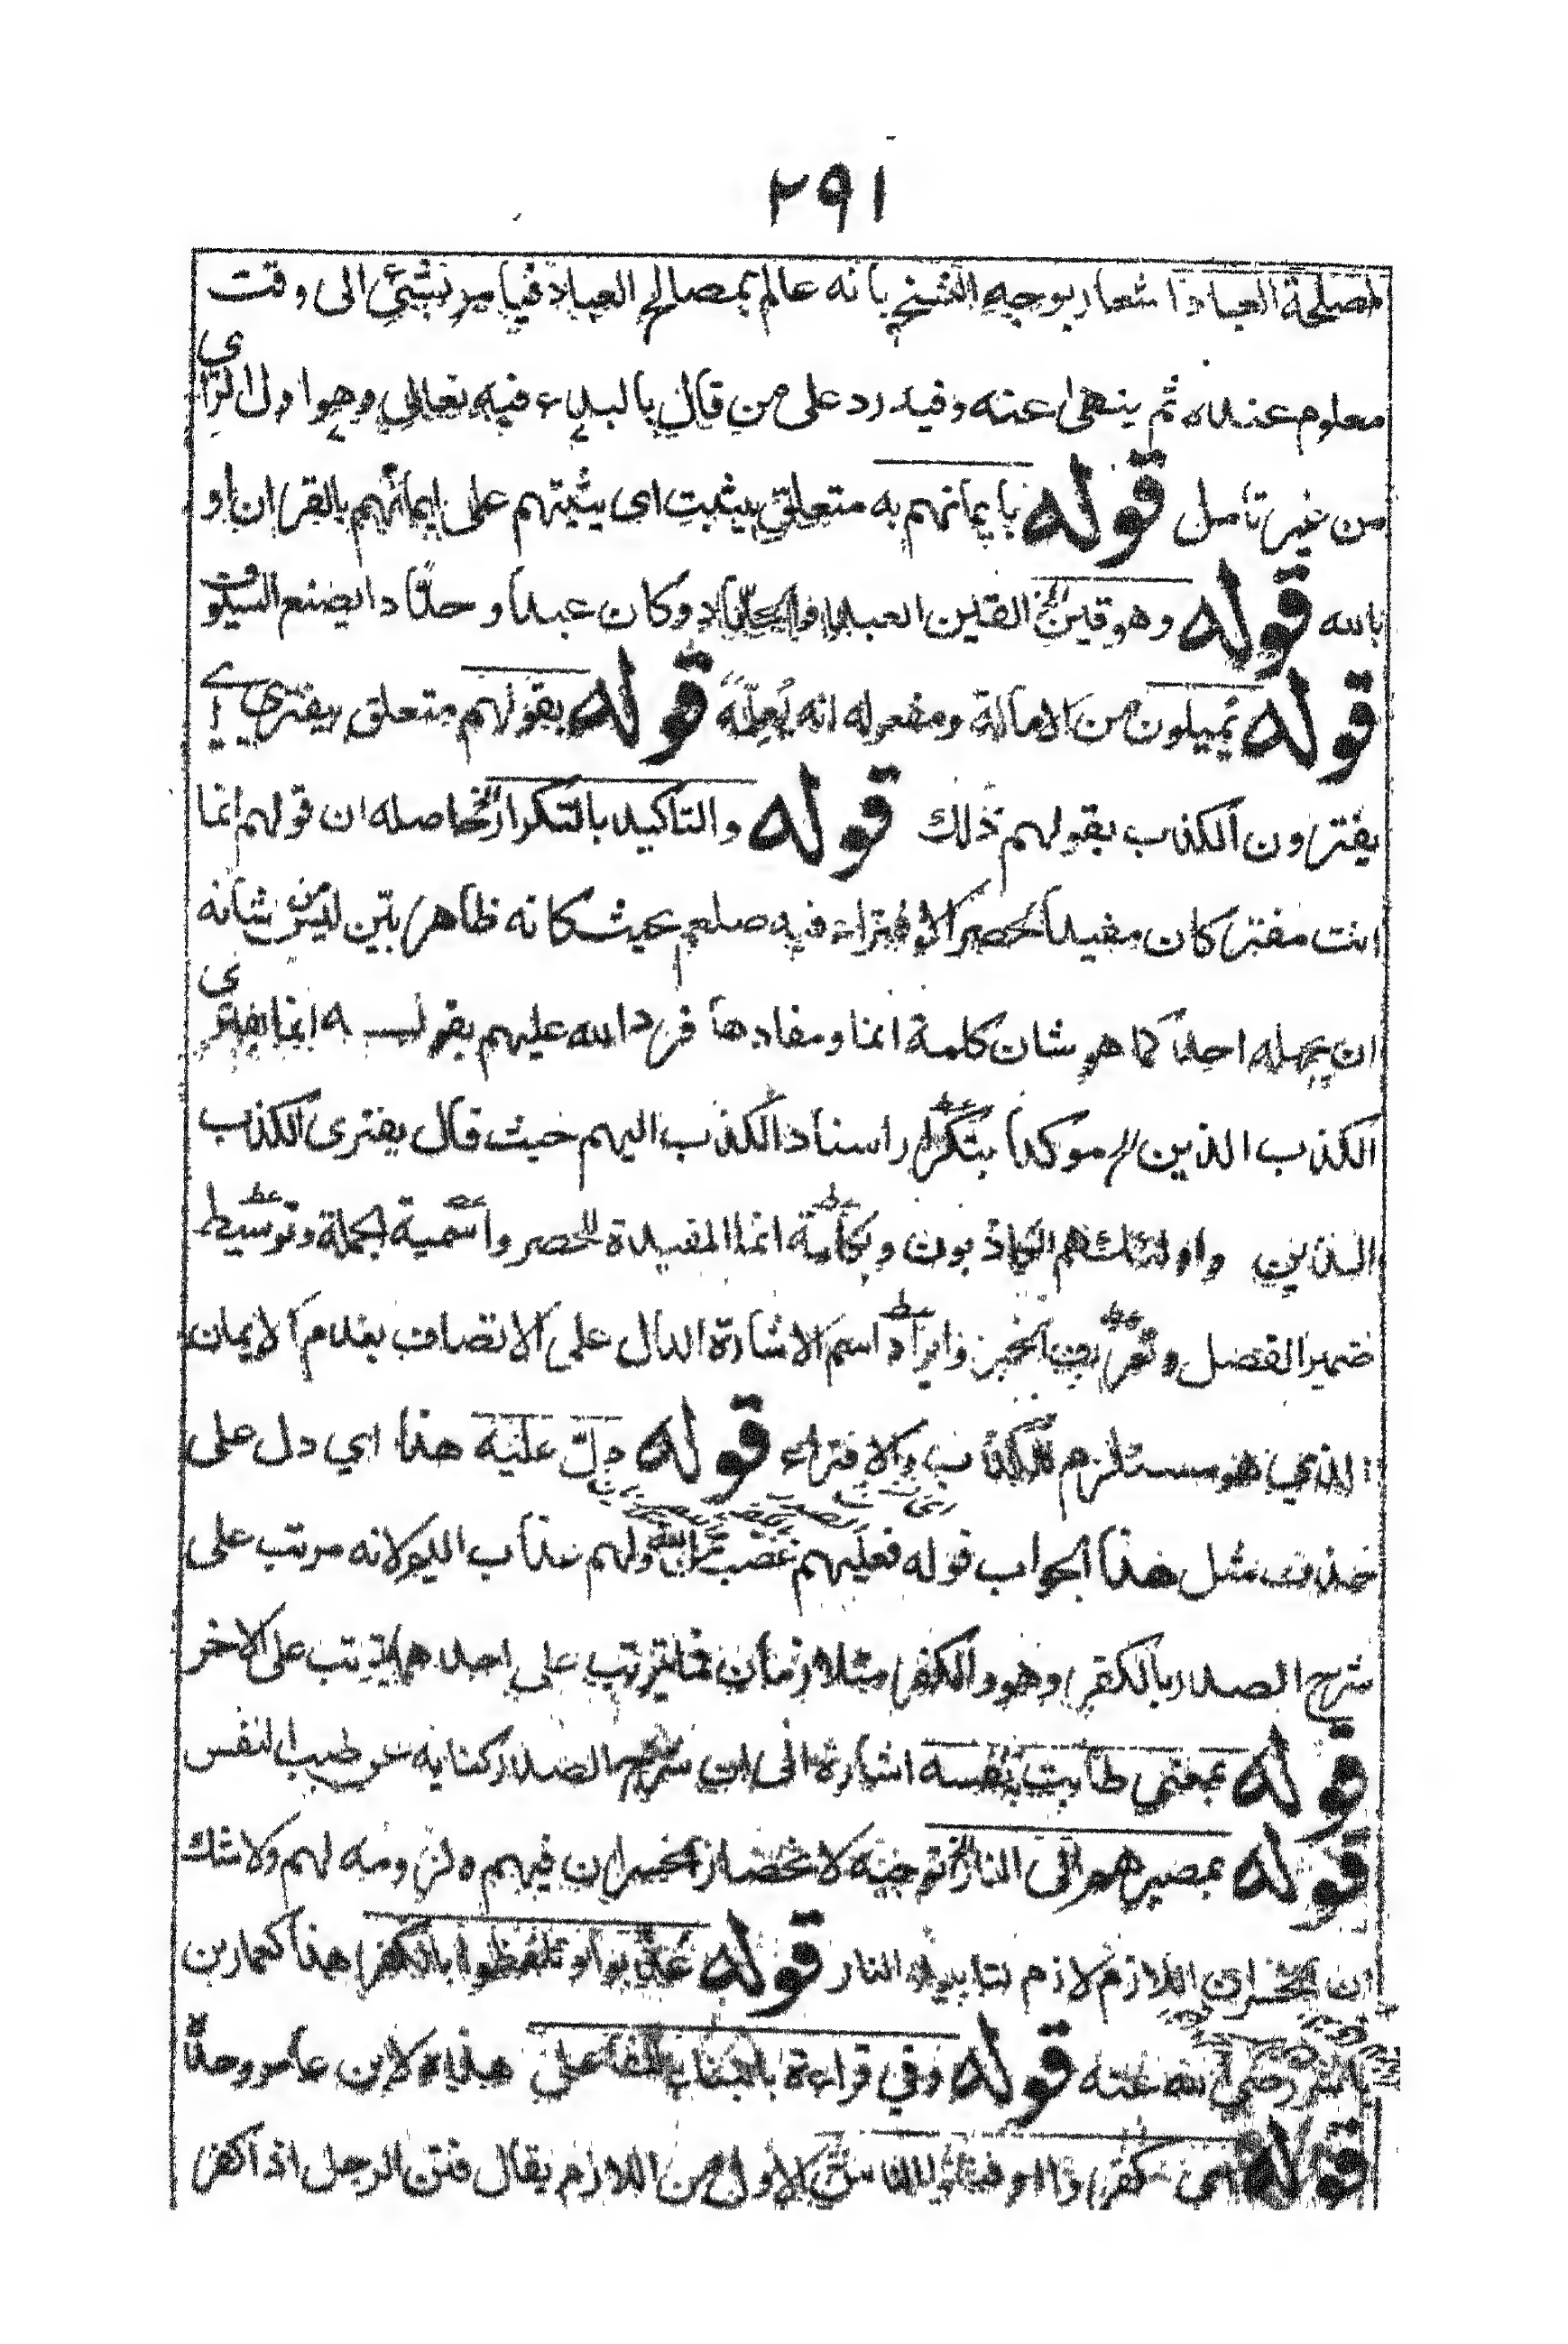 ٢٩١
لمصلحة العباد اشعار بوجه النسخ بانه عالم بمصالح العباد فيامر بشئ الى وقت
معلوم عنده ثم ينهى عنه وفيه رد على من قال بالبداء فيه تعالى وهو اول الراى
من غير تامل قوله بايمانهم به متعلق بيثبت اى يثبتهم على ايمانهم بالقران او
بالله قوله وهو قين الخ القين العبد والحداد وكان عبدا وحدادا يصنع السيوف
قوله يميلون من الامالة ومفعوله انه يعلمه قوله بقولهم متعلق بيفترى اى
يفترون الكذب بقولهم ذلك قوله والتاكيد بالتكرار الخ حاصله ان قولهم انما
انت مفتر كان مفيدا لحصر الافتراء فيه صلعم بحيث كانه ظاهر بين ليس من شانه
ان يجهله احد كما هو شان كلمة انما ومفادها فرد الله عليهم بقوله انما يفترى
الكذب الذين الخ موكدا بتكرار اسناد الكذب اليهم حيث قال يفترى الكذب
الذين واولئك هم الكاذبون وبكلمة انما المفيدة للحصر واسمية الجملة وتوسيط
ضمير الفصل وتعريف الخبر وايراد اسم الاشارة الدال على الاتصاف بعدم الايمان
الذي هو مستلزم للكذب والافتراء قوله دل عليه هذا اي دل على
حذف مثل هذا الجواب قوله فعليهم غضب من الله ولهم عذاب اليم لانه مرتب على
شرح الصدر بالكفر وهو والكفر متلازمان فما يترتب على احدهما يترتب على الاخر
قوله بمعنى طابت به نفسه اشارة الى ان شرح الصدر كناية عن طيب النفس
قوله بمصيرهم الى النار الخ توجيه لانحصار الخسران فيهم ولزومه لهم ولا شك
ان الخسران اللازم لازم لتابيد النار قوله عذبوا وتلفظوا بالكفر هذا كعمار بن
ياسر رضي الله عنه قوله وفي قراءة بالبناء للفاعل هذه لابن عامر وحده
قوله اى كفروا او فتنوا الناس الاول من اللازم يقال فتن الرجل اذا كفر